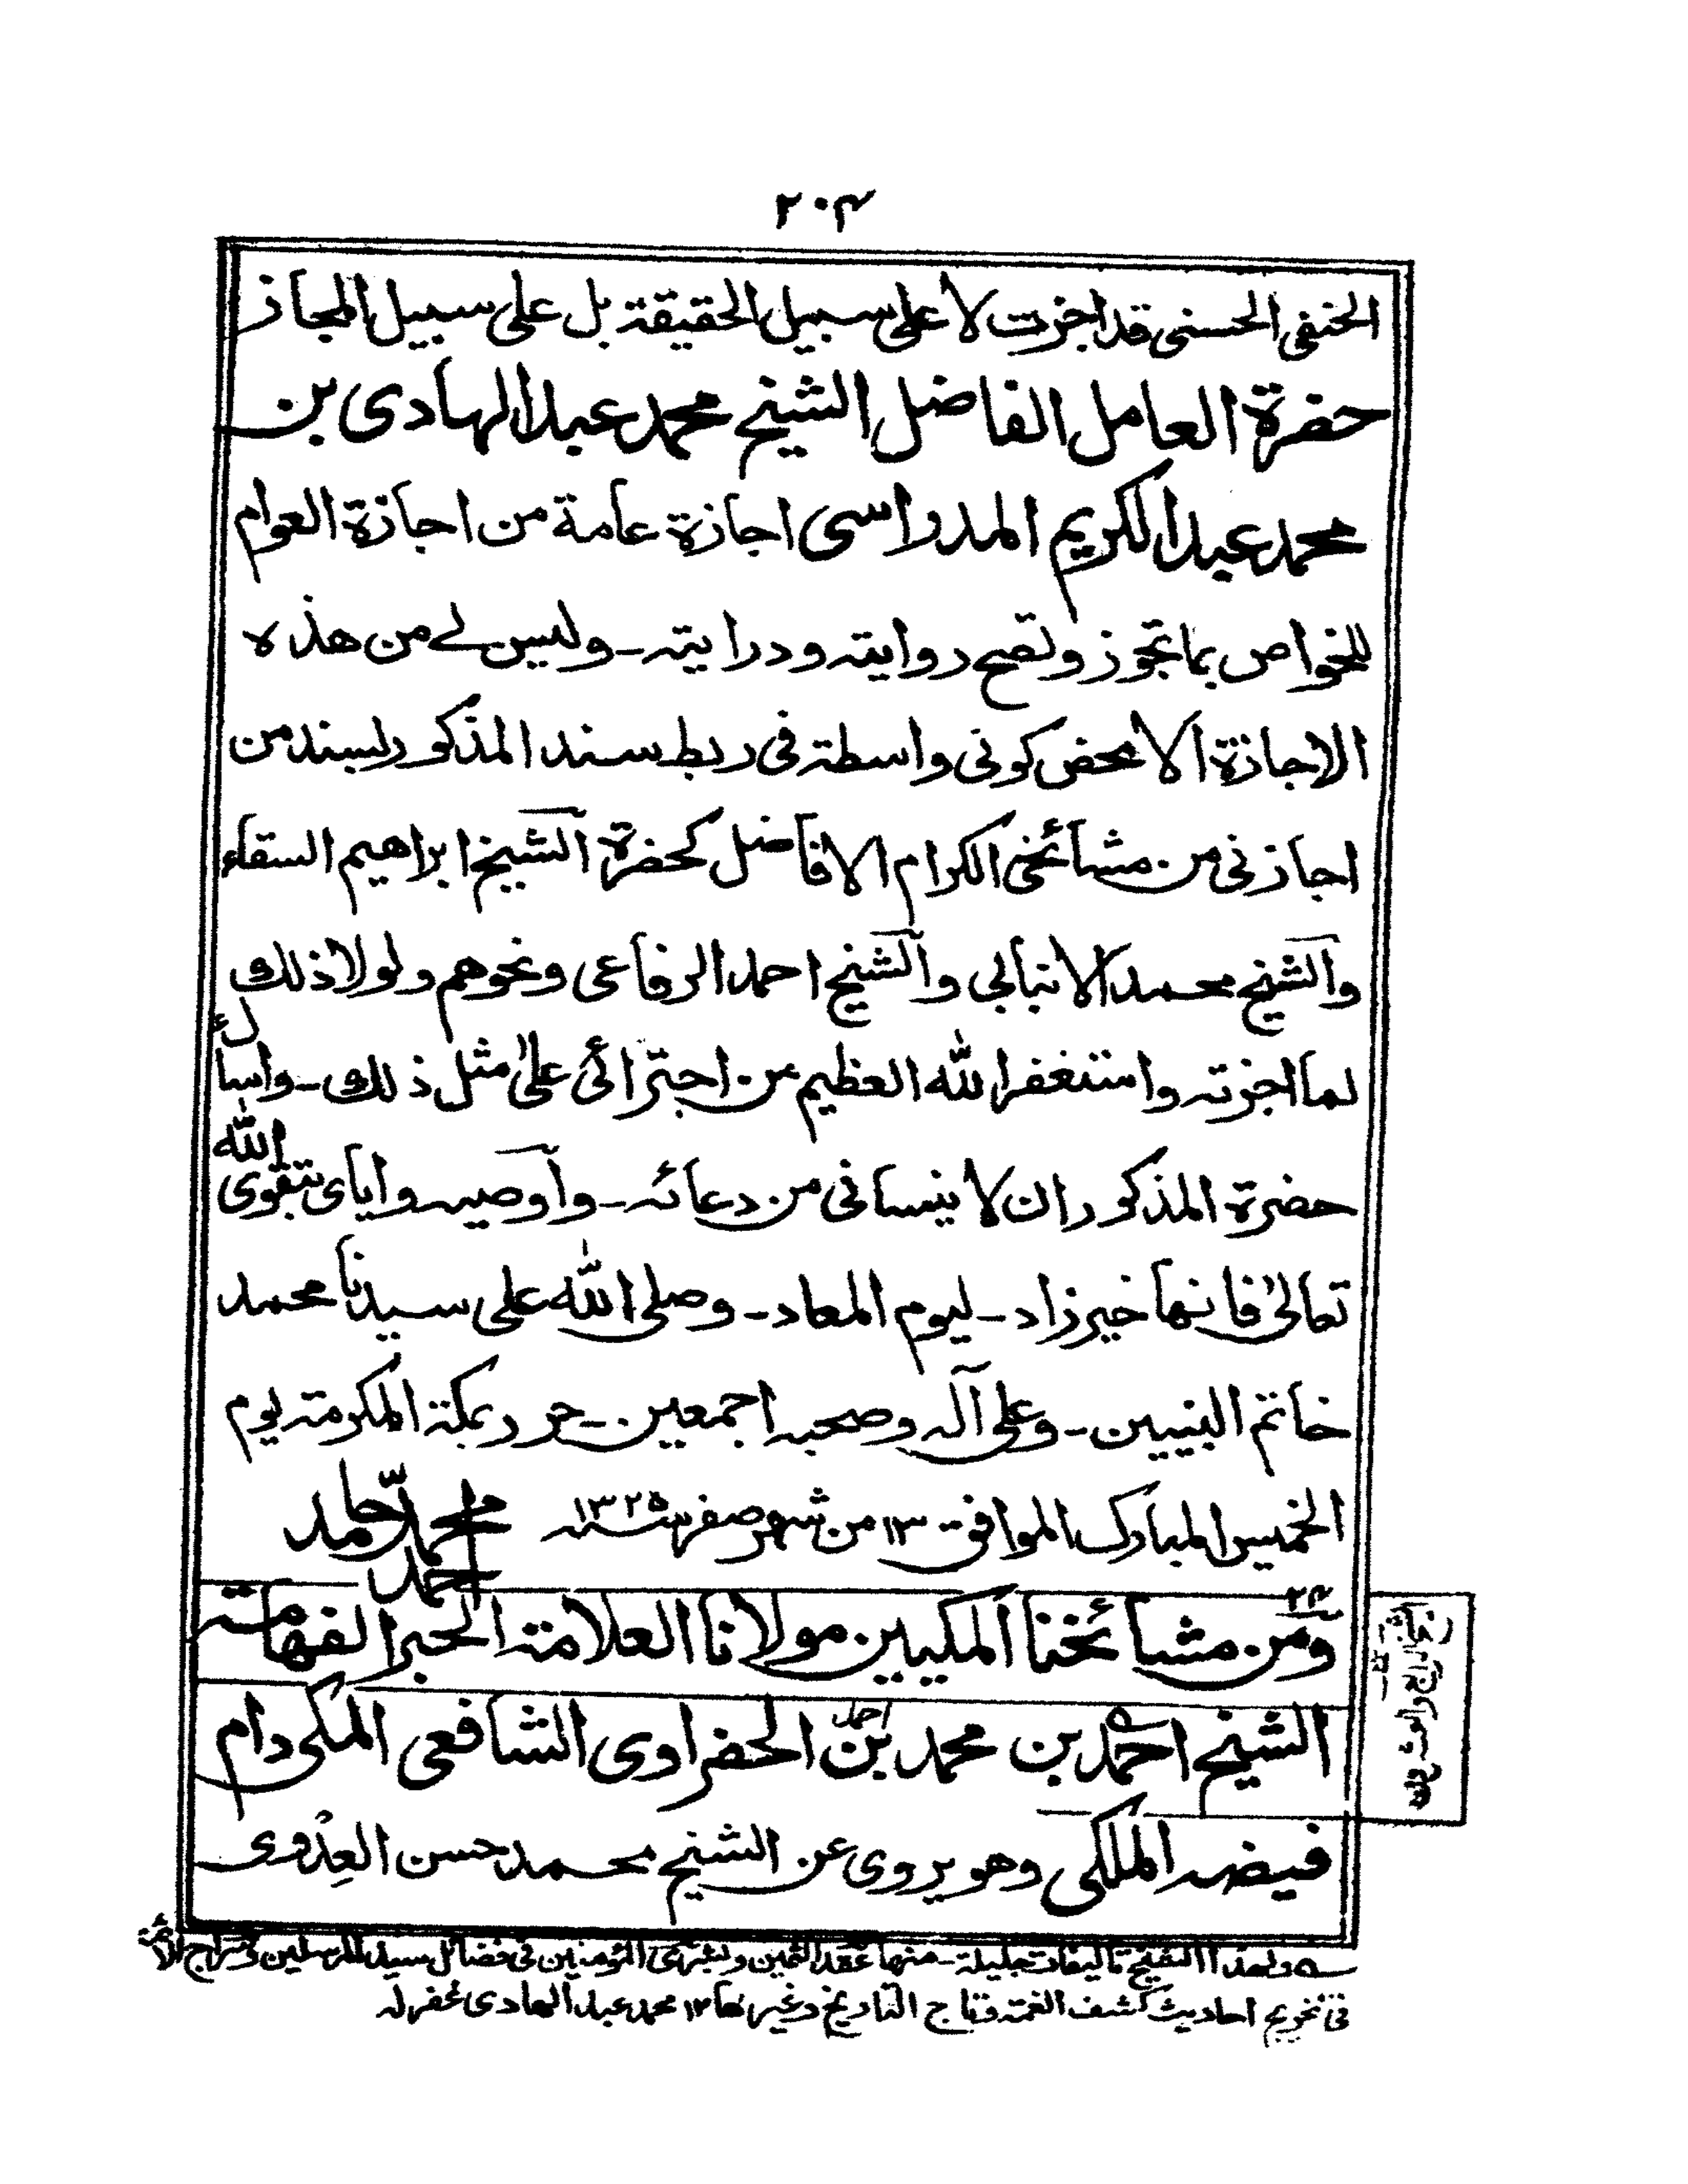 ٢٠٤
الحنفى الحسنى قد اجزت لا على سبيل الحقيقة بل على سبيل المجاز
حضرة العامل الفاضل الشيخ محمد عبد الهادى بن
محمد عبد الكريم المدراسى اجازة عامة من اجازة العوام
للخواص بما تجوز وتصح روايته ودرايته - وليس لے من هذه
الاجازة الا محض كونى واسطة فى ربط سند المذكور بسند من
اجازنى من مشآئخى الكرام الافاضل كحضرة الشيخ ابراهيم السقاء
والشيخ محمد الانبابى والشيخ احمد الرفاعى ونحوهم ولولا ذلك
لما اجزته واستغفر الله العظيم من اجترائى على مثل ذلك - واسأل
حضرة المذكور ان لا ينسانى من دعائه - وأوصيه واياى بتقوى الله
تعالى فانها خير زاد - ليوم المعاد - وصلى الله على سيدنا محمد
خاتم النبيين - وعلى آله وصحبه اجمعين - حرر بمكة المكرمة يوم
الخميس المبارك الموافق ١٣ من شهر صفر سنه ١٣٢٥ محمد حامد
احمد
٢٤
ومن مشآئخنا المكيين مولانا العلامة الحبر الفهامة
الشيخ احمد بن محمد بن احمد الحضراوى الشافعى المكى دام
فيضه الملكى وهو يروى عن الشيخ محمد حسن العِدْوى
ولهذا الشيخ تاليفات جليلة - منها عقد الثمين وبشرى المؤمنين فى فضائل سيد المرسلين وسراج الأمة
فى تخريج احاديث كشف الغمة وتاج التاريخ وغيرها ١٢ محمد عبد الهادى غفر له
الرابع والعشرون